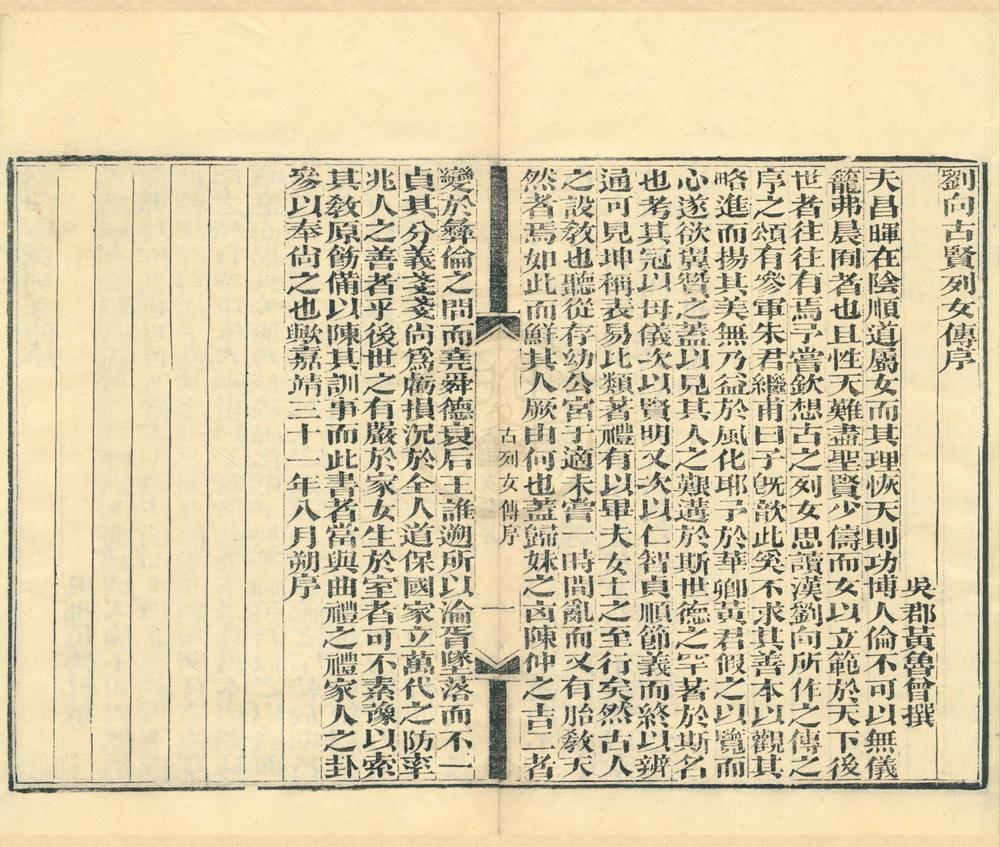 劉向古賢列女傳序
吳郡黃魯曾撰
夫昌暉在陰順道屬女而其理恢天則功博人倫不可以無儀
籠弗晨閤者也且性天難盡聖賢少儔而女以立範於天下後
世者往往有焉予嘗欽想古之列女思讀漢劉向所作之傳之
序之頌有參軍朱君繼甫曰子旣歆此奚不求其善本以觀其
略進而揚其美無乃益於風化耶予於華卿黃君假之以覽而
心遂欲冀贊之蓋以見其人之艱遘於斯世德之罕著於斯名
也考其冠以母儀次以賢明又次以仁智貞順節義而終以辨
通可見坤稱表易比類著禮有以畢夫女士之至行矣然古人
之設敎也聽從存幼公宮于適未嘗一時間亂而又有胎敎天
然者焉如此而鮮其人厥由何也蓋歸妹之卤陳仲之吉二者
古列女傳序
一
變於彝倫之間而堯舜德衰后王誰遡所以淪胥墜落而不一
貞其分義戔戔尙爲虧損況於全人道保國家立萬代之防率
兆人之善者乎後世之有嚴於家女生於室者可不素豫以索
其敎原飭備以陳其訓事而此書者當與曲禮之禮家人之卦
參以奉尙之也歟嘉靖三十一年八月朔序